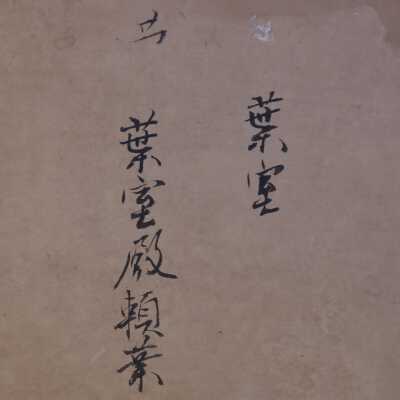 葉室
葉室殿頼業